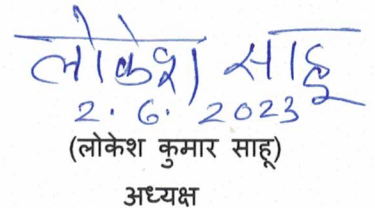 लोकेश साहू
2.6.2023
(लोकेश कुमार साहू)
अध्यक्ष